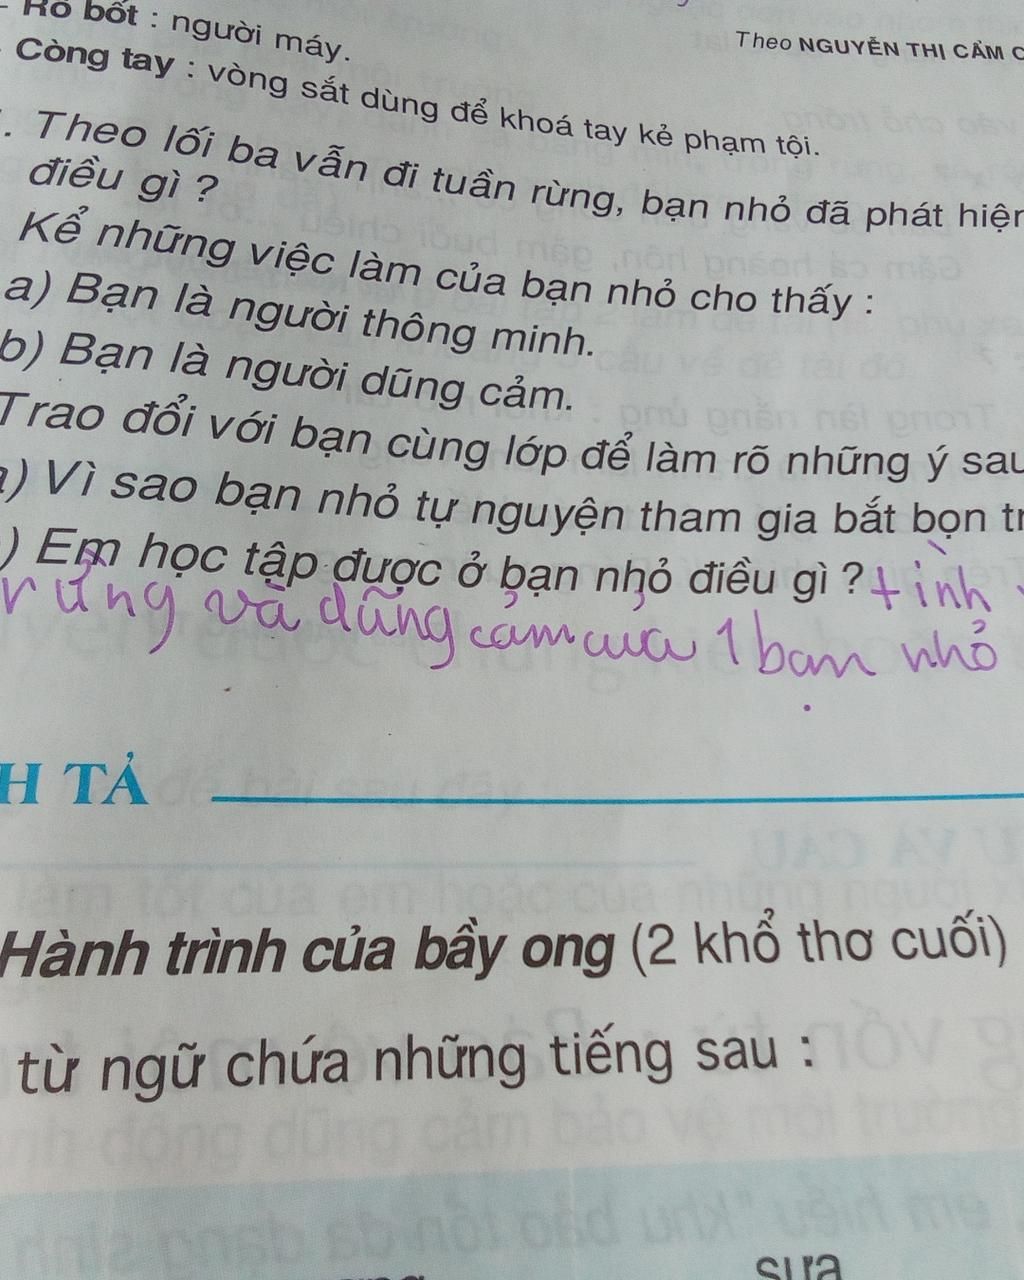 - Rô bốt : người máy.
Theo NGUYỄN THỊ CẨM
- Còng tay : vòng sắt dùng để khoá tay kẻ phạm tội.
. Theo lối ba vẫn đi tuần rừng, bạn nhỏ đã phát hiện
điều gì ?
Kể những việc làm của bạn nhỏ cho thấy :
a) Bạn là người thông minh.
b) Bạn là người dũng cảm.
Trao đổi với bạn cùng lớp để làm rõ những ý sau
) Vì sao bạn nhỏ tự nguyện tham gia bắt bọn
) Em học tập được ở bạn nhỏ điều gì ? tình
rừng và dũng cảm của 1 bạn nhỏ
H TẢ
Hành trình của bầy ong (2 khổ thơ cuối)
từ ngữ chứa những tiếng sau :
sưa